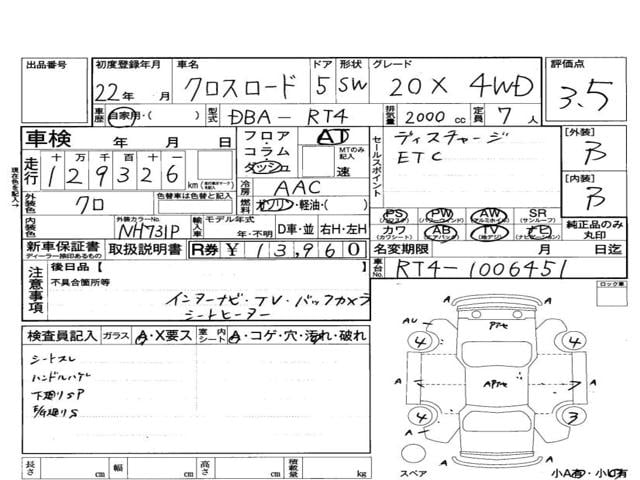 出品番号 初度登録年月 車名 ドア 形状 グレード 評価点
22年 月 クロスロード 5 SW 20X 4WD 3.5
車歴 自家用・( ) 型式 DBA-RT4 排気量 2000 cc 定員 7 人
車検 年 月 日 フロア・コラム・ダッシュ AT MTのみ記入 速
走行 十万千百十一 129326 km
冷房 AAC
外装色 クロ 色替車は色替と記入 燃料 ガソリン・軽油・( )
内装色 外装カラーNo. NH731P 輸入車 モデル年式 年・不明 D車・並 右H・左H
セールスポイント ディスチャージ
ETC
[外装] B
[内装] B
PS PW AW SR (サンルーフ)
カワ AB TV ナビ
純正品のみ丸印
新車保証書 取扱説明書 R券 ¥13,960 名変期限 月 日迄
ディーラー捺印あるもの
車台No. RT4-1006451
注意事項 後日品【 】
不具合箇所等
インターナビ・TV・バックカメラ
シートヒーター
ロック車
検査員記入 ガラス A・X要ス 室内シート A・コゲ・穴・汚れ・破れ
シートスレ
ハンドルハゲ
下廻りSP
長さ cm 幅 cm 高さ cm 積載量 kg
現在色を記入
AU A PTせ A
4 4
A APTせ A
4 3
AU A A
A
スペア 小A有・小U有